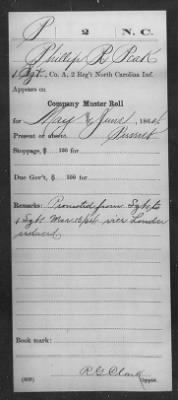 P 2 N. C.
Phillip R Peak
1 Sgt, Co. A, 2 Reg't North Carolina Inf.
Appears on
Company Muster Roll
for May & June, 1864.
Present or absent Present
Stoppage, $ 100 for
Due Gov't, $ 100 for
Remarks: Promoted from Sgt to
1 Sgt Mar & Apl vice
reduced
Book mark:
R G Clark
Copyist.